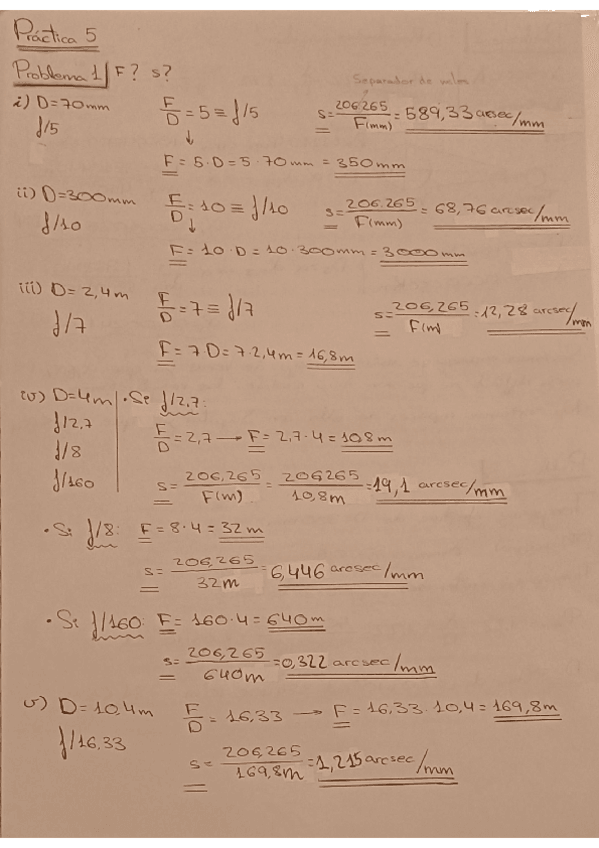 Práctica 5
Problema 1 F? s?
Separador de miles
i) D=70mm F/D = 5 ≡ f/5 s = 206.265/F(mm) = 589,33 arcsec/mm
f/5 ↓
F = 5·D = 5·70mm = 350mm
ii) D=300mm F/D = 10 ≡ f/10 s = 206.265/F(mm) = 68,76 arcsec/mm
f/10 ↓
F = 10·D = 10·300mm = 3000mm
iii) D = 2,4m F/D = 7 ≡ f/7 s = 206,265/F(m) = 12,28 arcsec/mm
f/7
F = 7·D = 7·2,4m = 16,8m
iv) D=4m · Si f/2,7:
f/2,7 F/D = 2,7 → F = 2,7·4 = 108m
f/8
f/160 s = 206,265/F(m) = 206265/10,8m = 19,1 arcsec/mm
· Si f/8: F = 8·4 = 32m
s = 206,265/32m = 6,446 arcsec/mm
· Si f/160: F = 160·4 = 640m
s = 206,265/640m = 0,322 arcsec/mm
v) D = 10,4m F/D = 16,33 → F = 16,33·10,4 = 169,8m
f/16,33
s = 206,265/169,8m = 1,215 arcsec/mm